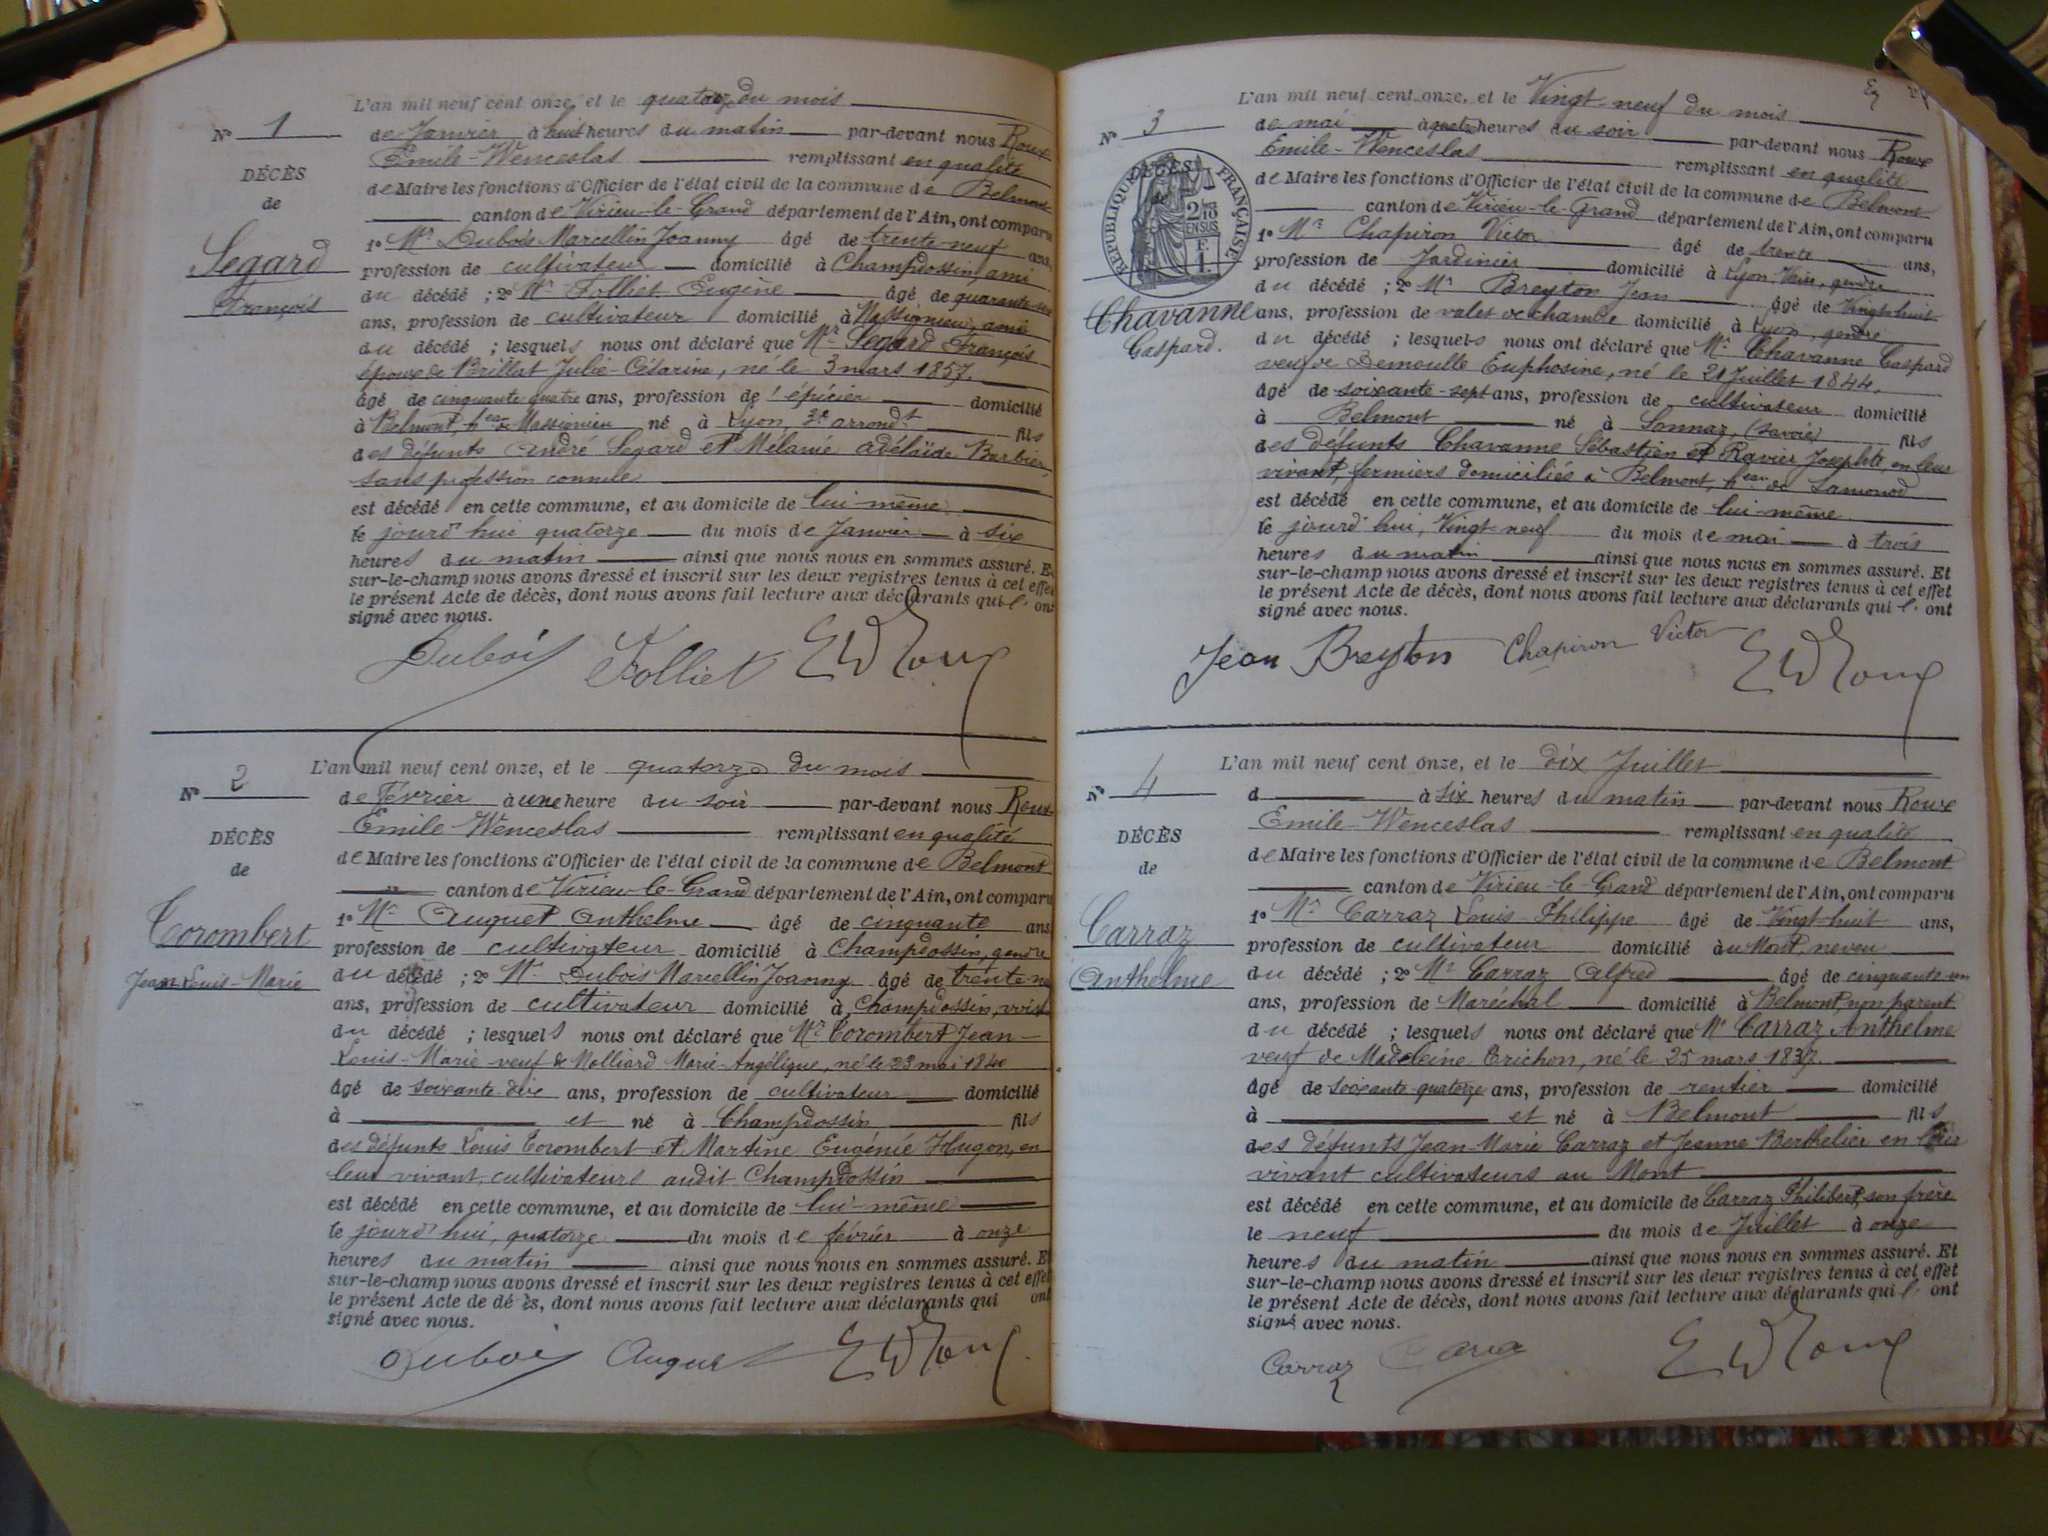 L'an mil neuf cent onze, et le quatorze du mois
N° 1
de Janvier à huit heures du matin par-devant nous Roux
Emile-Wenceslas remplissant en qualité
DÉCÈS
de Maire les fonctions d'Officier de l'état civil de la commune de Belmont
de
canton de Virieu-le-Grand département de l'Ain, ont comparu
Segard
François
1° Mr Dubois Marcellin Joanny âgé de trente-neuf ans,
profession de cultivateur domicilié à Champdossin, ami
du décédé ; 2° Mr Folliet Eugène âgé de quarante
ans, profession de cultivateur domicilié à Massignieu, ami
du décédé ; lesquels nous ont déclaré que Mr Segard François
époux de Brillat Julie-Césarine, né le 3 mars 1857.
âgé de cinquante quatre ans, profession d'épicier domicilié
à Belmont, heau de Massignieu né à Lyon, 3e arrondt fils
des défunts André Segard et Mélanie Adélaïde Barbier,
sans profession connue
est décédé en cette commune, et au domicile de lui-même
le jourd'hui quatorze du mois de Janvier à six
heures du matin ainsi que nous nous en sommes assuré. Et
sur-le-champ nous avons dressé et inscrit sur les deux registres tenus à cet effet
le présent Acte de décès, dont nous avons fait lecture aux déclarants qui l' ont
signé avec nous.
Dubois Folliet EWRoux
L'an mil neuf cent onze, et le quatorze du mois
N° 2
de Février à une heure du soir par-devant nous Roux
Emile-Wenceslas remplissant en qualité
DÉCÈS
de Maire les fonctions d'Officier de l'état civil de la commune de Belmont
de
canton de Virieu-le-Grand département de l'Ain, ont comparu
Corombert
Jean Louis-Marie
1° Mr Auguet Anthelme âgé de cinquante ans
profession de cultivateur domicilié à Champdossin, gendre
du décédé ; 2° Mr Dubois Marcellin Joanny âgé de trente-
ans, profession de cultivateur domicilié à Champdossin, voisin
du décédé ; lesquels nous ont déclaré que Mr Corombert Jean-
Louis-Marie veuf de Molliard Marie-Angélique, né le 23 mai 1840
âgé de soixante-dix ans, profession de cultivateur domicilié
à et né à Champdossin fils
des défunts Louis Corombert et Martine Eugénie Hugon, en
leur vivant, cultivateurs audit Champdossin
est décédé en cette commune, et au domicile de lui-même
le jourd'hui, quatorze du mois de février à onze
heures du matin ainsi que nous nous en sommes assuré. Et
sur-le-champ nous avons dressé et inscrit sur les deux registres tenus à cet effet
le présent Acte de dé ès, dont nous avons fait lecture aux déclarants qui ont
signé avec nous.
Dubois Auguet EWRoux
L'an mil neuf cent onze, et le Vingt-neuf du mois
N° 3
de mai à quatre heures du soir par-devant nous Roux
Emile-Wenceslas remplissant en qualité
RÉPUBLIQUE FRANÇAISE
DÉCÈS
2/10 EN SUS
F.
1.
de Maire les fonctions d'Officier de l'état civil de la commune de Belmont
canton de Virieu-le-Grand département de l'Ain, ont comparu
Chavanne
Gaspard.
1° Mr Chapiron Victor âgé de trente ans,
profession de Jardinier domicilié à Lyon, Vaise, gendre
du décédé ; 2° Mr Breyton Jean âgé de Vingt-huit
ans, profession de valet de chambre domicilié à Lyon, gendre
du décédé ; lesquels nous ont déclaré que Mr Chavanne Gaspard
veuf de Demoulle Euphosine, né le 21 Juillet 1844,
âgé de soixante-sept ans, profession de cultivateur domicilié
à Belmont né à Sonnaz, (savoie) fils
des défunts Chavanne Sébastien et Ravier Josephte, en leur
vivant, fermiers domiciliés à Belmont, heau de Lamonod
est décédé en cette commune, et au domicile de lui-même
le jourd'hui, Vingt-neuf du mois de mai à trois
heures du matin ainsi que nous nous en sommes assuré. Et
sur-le-champ nous avons dressé et inscrit sur les deux registres tenus à cet effet
le présent Acte de décès, dont nous avons fait lecture aux déclarants qui l' ont
signé avec nous.
Jean Breyton Chapiron Victor EWRoux
L'an mil neuf cent onze, et le dix Juillet
N° 4
d à six heures du matin par-devant nous Roux
Emile-Wenceslas remplissant en qualité
DÉCÈS
de Maire les fonctions d'Officier de l'état civil de la commune de Belmont
de
canton de Virieu-le-Grand département de l'Ain, ont comparu
Carraz
Anthelme
1° Mr Carraz Louis-Philippe âgé de Vingt-huit ans,
profession de cultivateur domicilié au Mont, neveu
du décédé ; 2° Mr Carraz Alfred âgé de cinquante-un
ans, profession de Maréchal domicilié à Belmont, non parent
du décédé ; lesquels nous ont déclaré que Mr Carraz Anthelme
veuf de Madeleine Erichon, né le 25 mars 1837.
âgé de soixante-quatorze ans, profession de rentier domicilié
à et né à Belmont fils
des défunts Jean-Marie Carraz et Jeanne Berthelier en leur
vivant cultivateurs au Mont
est décédé en cette commune, et au domicile de Carraz Philibert, son frère
le neuf du mois de Juillet à onze
heures du matin ainsi que nous nous en sommes assuré. Et
sur-le-champ nous avons dressé et inscrit sur les deux registres tenus à cet effet
le présent Acte de décès, dont nous avons fait lecture aux déclarants qui l' ont
signé avec nous.
Carraz Carraz EWRoux